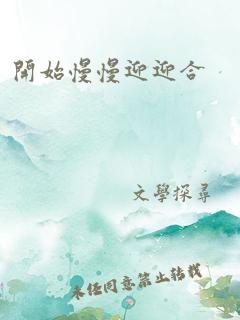 開始慢慢迎迎合
文學探尋
未經同意禁止轉載